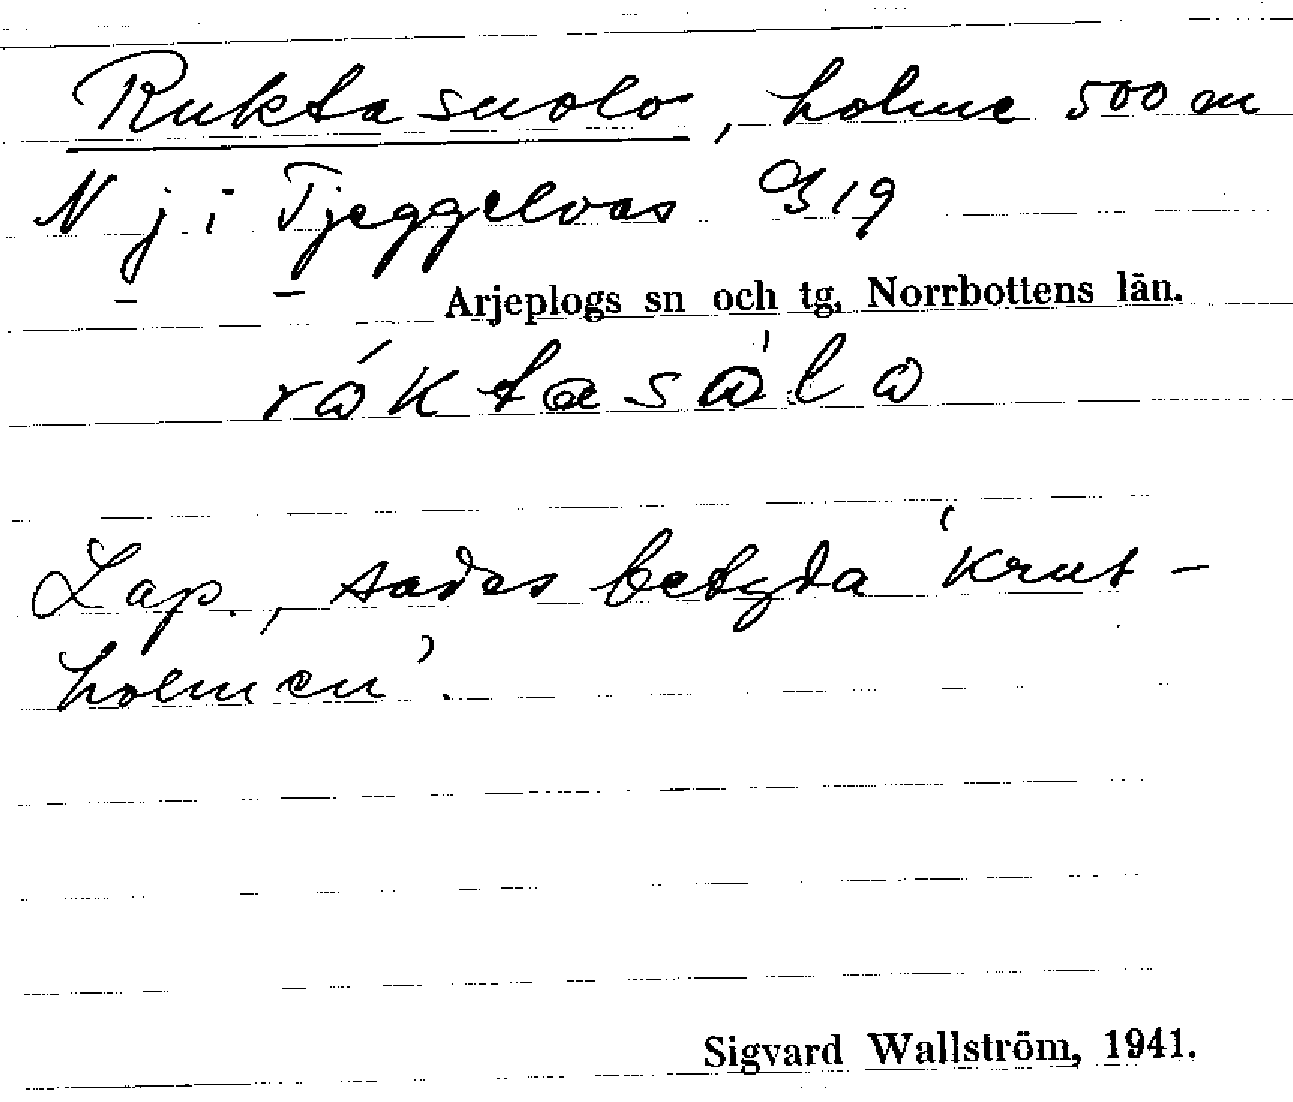 Ruktasuolo, holme 500 m
N j i Tjeggelvas G 19
Arjeplogs sn och tg, Norrbottens län.
Lap., sades betyda 'krut-
holmen'.
Sigvard Wallström, 1941.